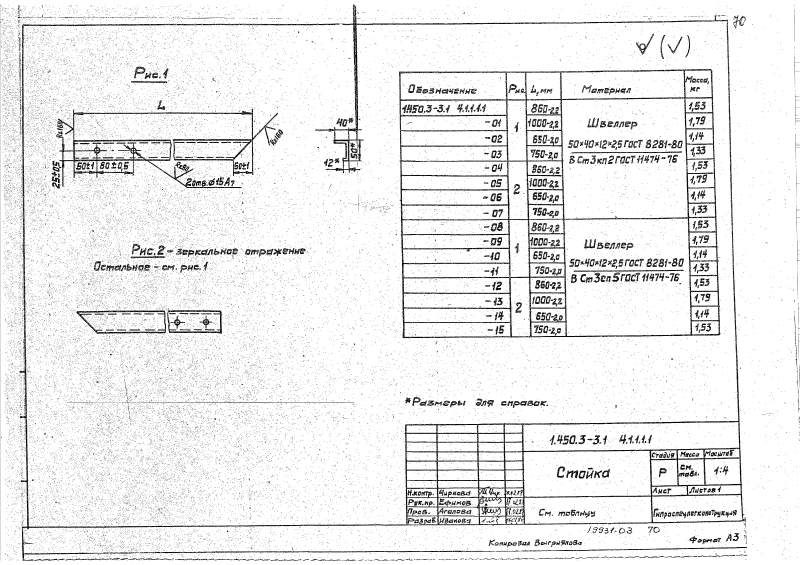 70
Рис.1
L
50±1
80±0,5
50±1
25±0,5
2отв.Ø15А7
40*
50*
12*
Рис.2 - зеркальное отражение
Остальное - см. рис.1
Обозначение Рис. L, мм Материал Масса, кг
1.450.3-3.1 4.1.1.1.1 1 860-2,2 Швеллер 50×40×12×2,5 ГОСТ 8281-80 В Ст3кп2 ГОСТ 11474-76 1,53
-01 1000-2,2 1,79
-02 650-2,0 1,14
-03 750-2,0 1,33
-04 2 860-2,2 1,53
-05 1000-2,2 1,79
-06 650-2,0 1,14
-07 750-2,0 1,33
-08 1 860-2,2 Швеллер 50×40×12×2,5 ГОСТ 8281-80 В Ст3сп5 ГОСТ 11474-76 1,53
-09 1000-2,2 1,79
-10 650-2,0 1,14
-11 750-2,0 1,33
-12 2 860-2,2 1,53
-13 1000-2,2 1,79
-14 650-2,0 1,14
-15 750-2,0 1,53
*Размеры для справок.
1.450.3-3.1 4.1.1.1.1
Стойка
Стадия Масса Масштаб
Р см. табл. 1:4
Лист Листов 1
Н.контр. Чиркова
Рук.пр. Ефимов
Пров. Агапова
Разраб. Иванова
См. таблицу
Гипроспецлегконструкция
19931-03 70
Копировал Выгриялова
Формат А3